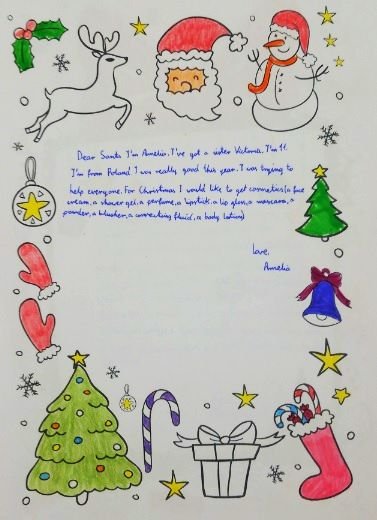 Dear Santa I'm Amelia. I've got a sister Victoria. I'm 11.
I'm from Poland I was really good this year. I was trying to
help everyone. For Christmas I would like to get cosmetics (a face
cream, a shower gel, a perfume, a lipstick, a lip gloss, a mascara, a
powder, a blusher, a correcting fluid, a body lotion)
Love,
Amelia